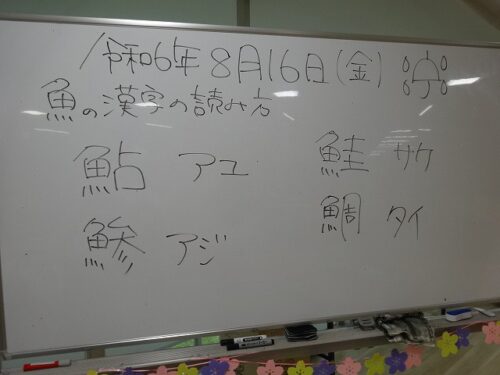 令和6年8月16日(金)
魚の漢字の読み方
鮎 アユ
鮭 サケ
鯵 アジ
鯛 タイ